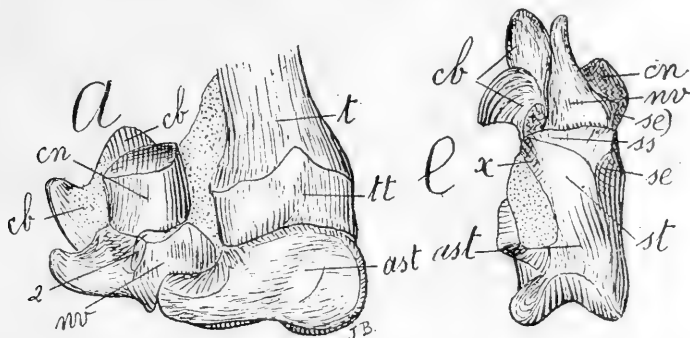 a
cb
cn
cb
2
nv
t
tt
ast
J.B.
e
cb
x
ast
cn
nv
se)
ss
se
st